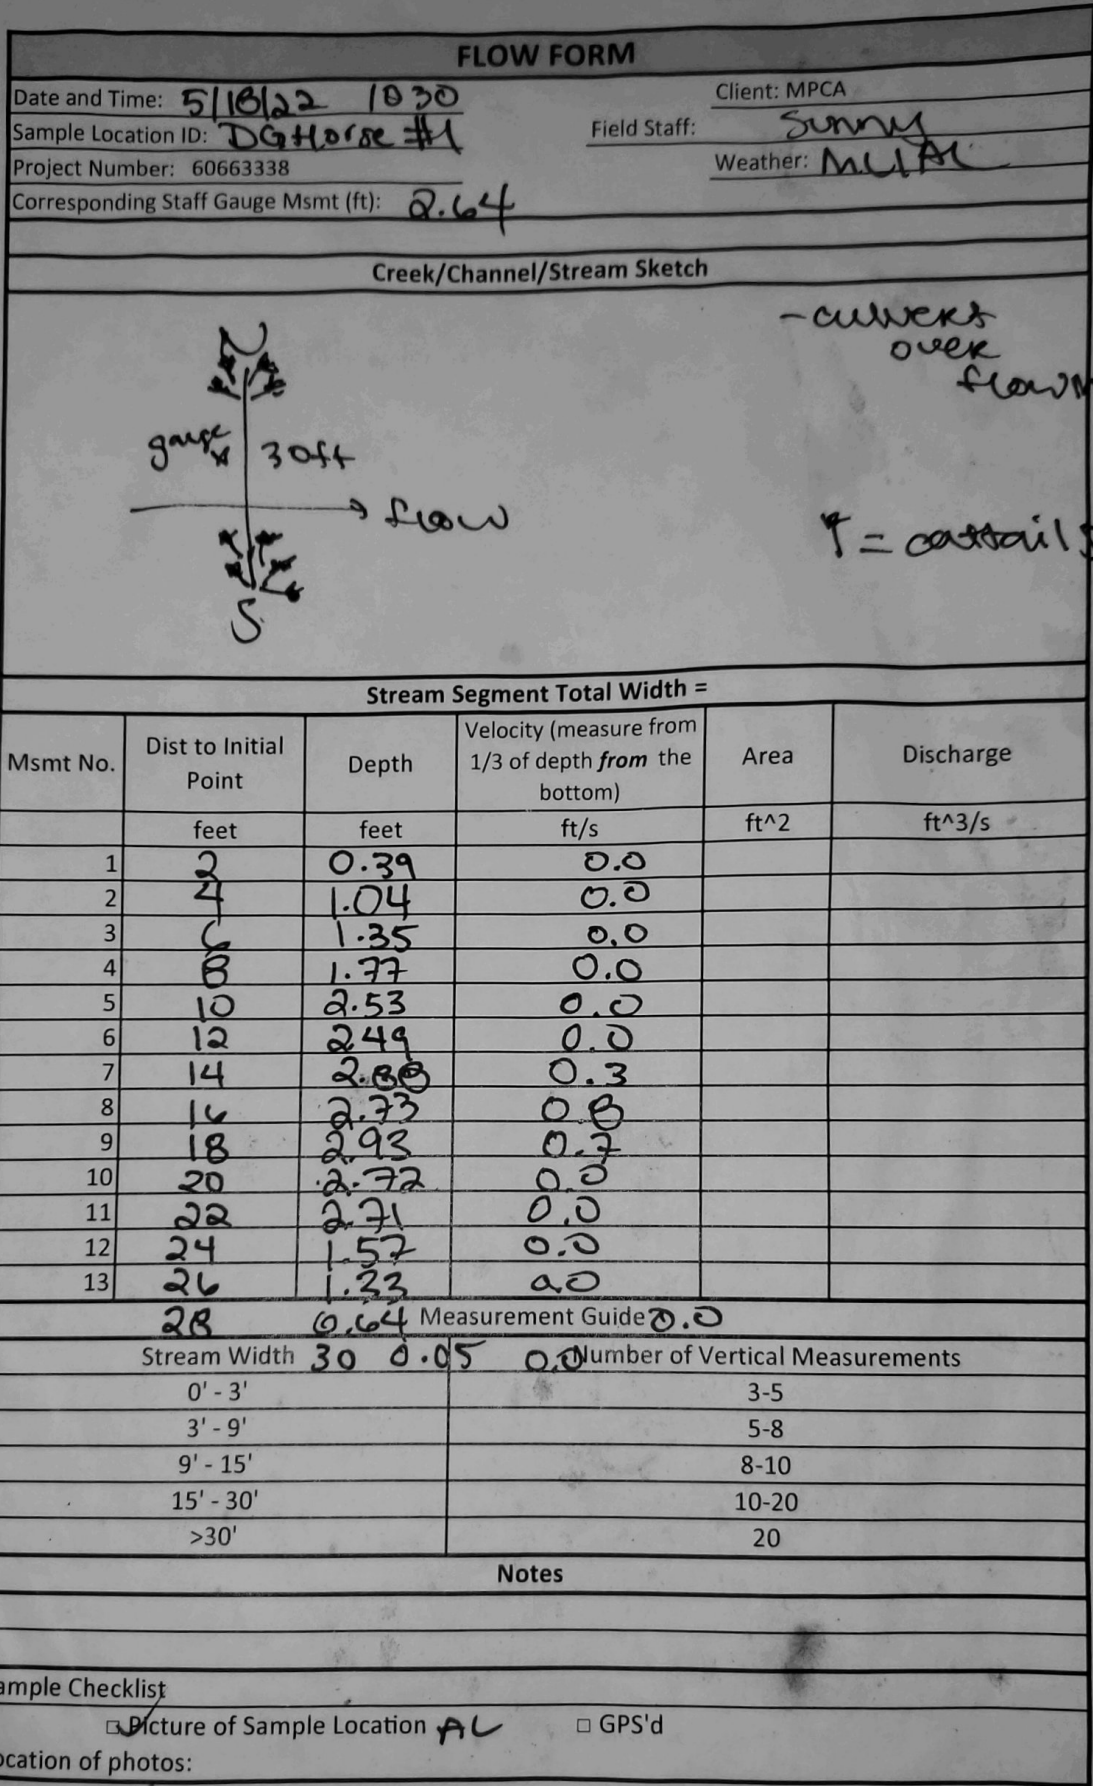 FLOW FORM
Date and Time: 5/18/22 1030
Client: MPCA
Sample Location ID: DG Horse #1
Field Staff: Sunny
Project Number: 60663338
Weather:
Corresponding Staff Gauge Msmt (ft): 2.64
Creek/Channel/Stream Sketch
- culvert
over
flown
N
gauge x 30ft
→ flow
= cattails
S
Stream Segment Total Width =
Msmt No. Dist to Initial Point Depth Velocity (measure from 1/3 of depth from the bottom) Area Discharge
feet feet ft/s ft^2 ft^3/s
1 2 0.39 0.0
2 4 1.04 0.0
3 6 1.35 0.0
4 8 1.77 0.0
5 10 2.53 0.0
6 12 2.49 0.0
7 14 2.88 0.3
8 16 2.73 0.8
9 18 2.93 0.7
10 20 2.72 0.0
11 22 2.71 0.0
12 24 1.57 0.0
13 26 1.33 0.0
28 0.64 Measurement Guide 0.0
Stream Width 30 0.05 0.0 Number of Vertical Measurements
0' - 3' 3-5
3' - 9' 5-8
9' - 15' 8-10
15' - 30' 10-20
>30' 20
Notes
ample Checklist
Picture of Sample Location AL □ GPS'd
ocation of photos: